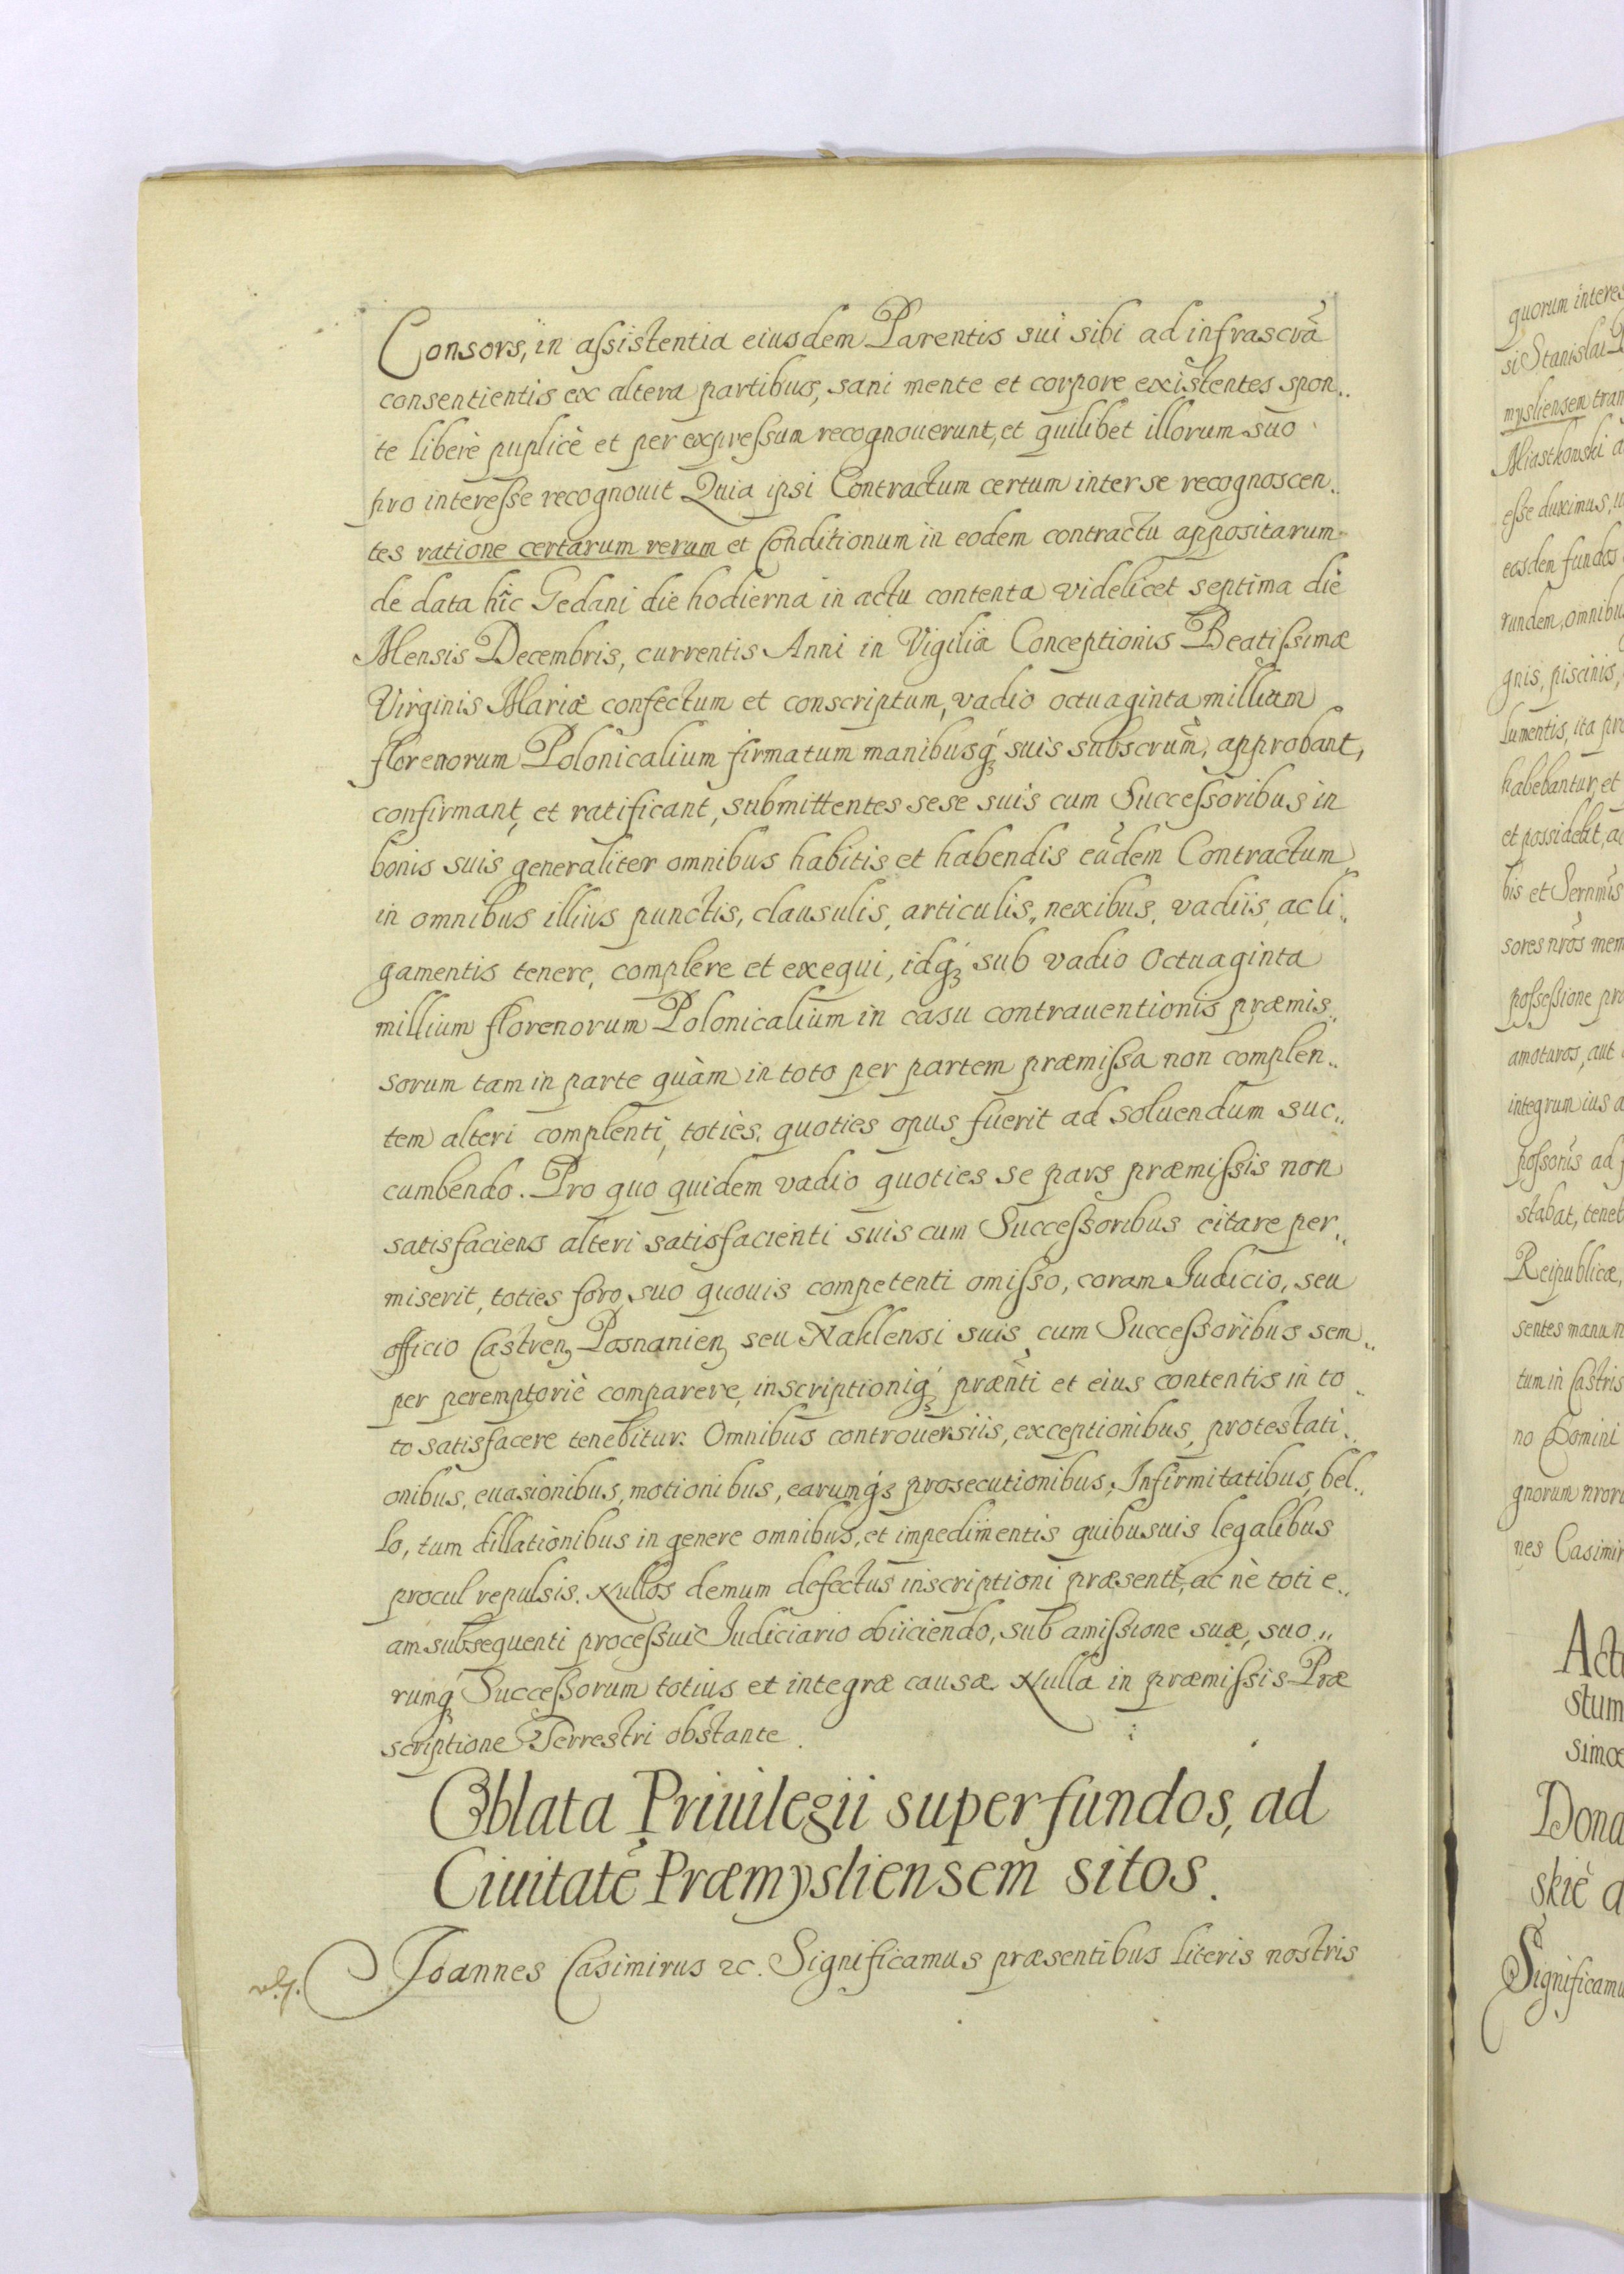 Consors, in assistentia eiusdem Parentis sui sibi ad infrascrã
consentientis ex altera partibus, sani mente et corpore existentes spon..
te liberè puplicè et per expressum recognouerunt, et quilibet illorum suo
pro interesse recognouit Quia ipsi Contractum certum inter se recognoscen..
tes ratione certarum rerum et Conditionum in eodem contractu appositarum
de data hîc Gedani die hodierna in actu contenta videlicet septima die
Mensis Decembris, currentis Anni in Vigilia Conceptionis Beatissimæ
Virginis Mariæ confectum et conscriptum, vadio octuaginta millium
florenorum Polonicalium firmatum manibusq́ꝫ suis subscrum̃, approbant,
confirmant, et ratificant, submittentes sese suis cum Successoribus in
bonis suis generaliter omnibus habitis et habendis eũdem Contractum
in omnibus illius punctis, clausulis, articulis, nexibus, vadiis, ac li..
gamentis tenere, complere et exequi, idq́ꝫ sub vadio Octuaginta
millium florenorum Polonicalium in casu contrauentionis præmis..
sorum tam in parte quàm in toto per partem præmissa non complen..
tem alteri complenti, toties, quoties opus fuerit ad soluendum suc..
cumbendo. Pro quo quidem vadio quoties se pars præmissis non
satisfaciens alteri satisfacienti suis cum Successoribus citare per..
miserit, toties foro suo quouis competenti omisso, coram Judicio, seu
officio Castrenꝫ Posnanienꝫ seu Naklensi suis cum Successoribus sem..
per peremptoriè comparere, inscriptioniq́ꝫ præñti et eius contentis in to..
to satisfacere tenebitur. Omnibus controuersiis, exceptionibus, protestati..
onibus, euasionibus, motionibus, earumq́ꝫ prosecutionibus, Infirmitatibus, bel..
lo, tum dillationibus in genere omnibus, et impedimentis quibusuis legalibus
procul repulsis. Nullos demum defectus inscriptioni præsenti, ac nè toti e..
am subsequenti processui Judiciario obiiciendo, sub amissione suæ, suo..
rumq́ꝫ Successorum totius et integræ causæ. Nulla in præmissis Præ
scriptione Terrestri obstante.
Oblata Priuilegii super fundos, ad
Ciuitatẽ Præmysliensem sitos.
Joannes Casimirus ꝛc. Significamus præsentibus literis nostris
quorum interes
si Stanislai
mysliensem tran
Miastkowski a
esse duximus,
eosdem fundos
rundem, omnibu
gnis, piscinis,
lumentis, ita pro
habebantur, et
et possidebit, ac
bis et Sernmis
sores nros mem
possessione pro
amoturos, aut
integrum ius a
possoris ad
stabat, teneb
Reipublicæ,
sentes manu n
tum in Castris
no Domini
gnorum nroru
nes Casimir
Actu
stum
simæ
Dona
skie a
Significamu